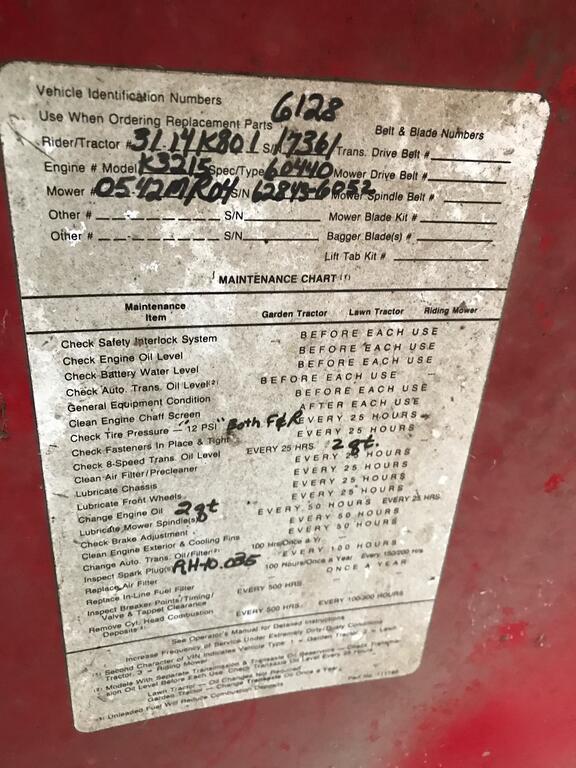 Vehicle Identification Numbers
Use When Ordering Replacement Parts 6128
Belt & Blade Numbers
Rider/Tractor # 31-14K801 S/N 17361 Trans. Drive Belt #
Engine # Model K321S Spec/Type 60440 Mower Drive Belt #
Mower # 0542MR04 S/N 62843-6052 Mower Spindle Belt #
Other # S/N Mower Blade Kit #
Other # S/N Bagger Blade(s) #
Lift Tab Kit #
MAINTENANCE CHART (1)
Maintenance Item Garden Tractor Lawn Tractor Riding Mower
Check Safety Interlock System BEFORE EACH USE
Check Engine Oil Level BEFORE EACH USE
Check Battery Water Level BEFORE EACH USE
Check Auto. Trans. Oil Level (2) BEFORE EACH USE
General Equipment Condition BEFORE EACH USE
Clean Engine Chaff Screen AFTER EACH USE
Check Tire Pressure - "12 PSI" Both F&R EVERY 25 HOURS
Check Fasteners In Place & Tight EVERY 25 HOURS
Check 8-Speed Trans. Oil Level EVERY 25 HRS. 2 qt.
Clean Air Filter/Precleaner EVERY 25 HOURS
Lubricate Chassis EVERY 25 HOURS
Lubricate Front Wheels EVERY 25 HOURS
Change Engine Oil 2 qt EVERY 25 HOURS
Lubricate Mower Spindle(s) EVERY 50 HOURS EVERY 25 HRS.
Check Brake Adjustment EVERY 50 HOURS
Clean Engine Exterior & Cooling Fins EVERY 50 HOURS
Change Auto. Trans. Oil/Filter (2) 100 Hrs/Once a Yr.
Inspect Spark Plug(s) RH-10 .035 EVERY 100 HOURS
Replace Air Filter 100 Hours/Once a Year Every 150/200 Hrs
Replace In-Line Fuel Filter ONCE A YEAR
Inspect Breaker Points/Timing/
Valve & Tappet Clearance EVERY 500 HRS.
Remove Cyl. Head Combustion
Deposits EVERY 500 HRS. EVERY 100-300 HOURS
See Operator's Manual for Detailed Instructions
Increase Frequency of Service Under Extremely Dirty/Dusty Conditions
(1) Second Character of VIN Indicates Vehicle Type 1 = Garden Tractor, 2 = Lawn
Tractor, 3 = Riding Mower
(2) Models With Separate Transmission & Transaxle Oil Reservoirs
sion Oil Level Before Each Use. Check Transaxle Oil Level Every 25 Hours.
Lawn Tractor — Oil Changes Not Required
Garden Tractor — Change Transaxle Oil Once a Year.
Unleaded Fuel Will Reduce Combustion Deposits